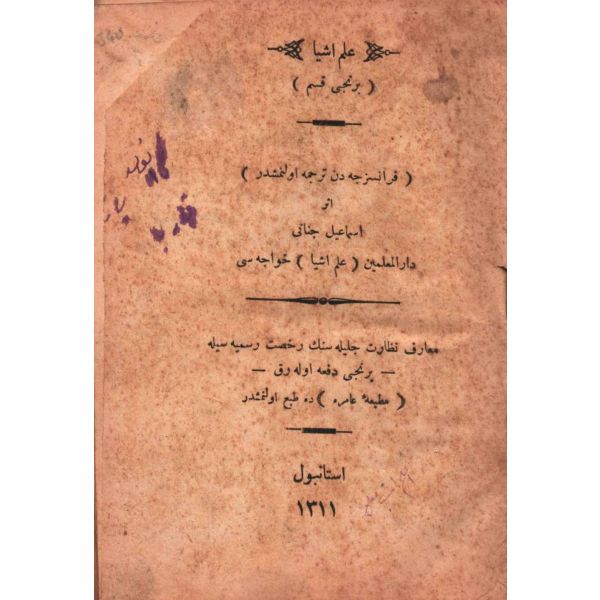 علم اشیا
( برنجی قسم )
( فرانسزجه دن ترجمه اولنمشدر )
اثر
اسماعیل جنانی
دارالمعلمین ( علم اشیا ) خواجه سی
معارف نظارت جلیله سنك رخصت رسمیه سیله
— برنجی دفعه اوله رق —
( مطبعهٔ عامره ) ده طبع اولنمشدر
استانبول
١٣١١